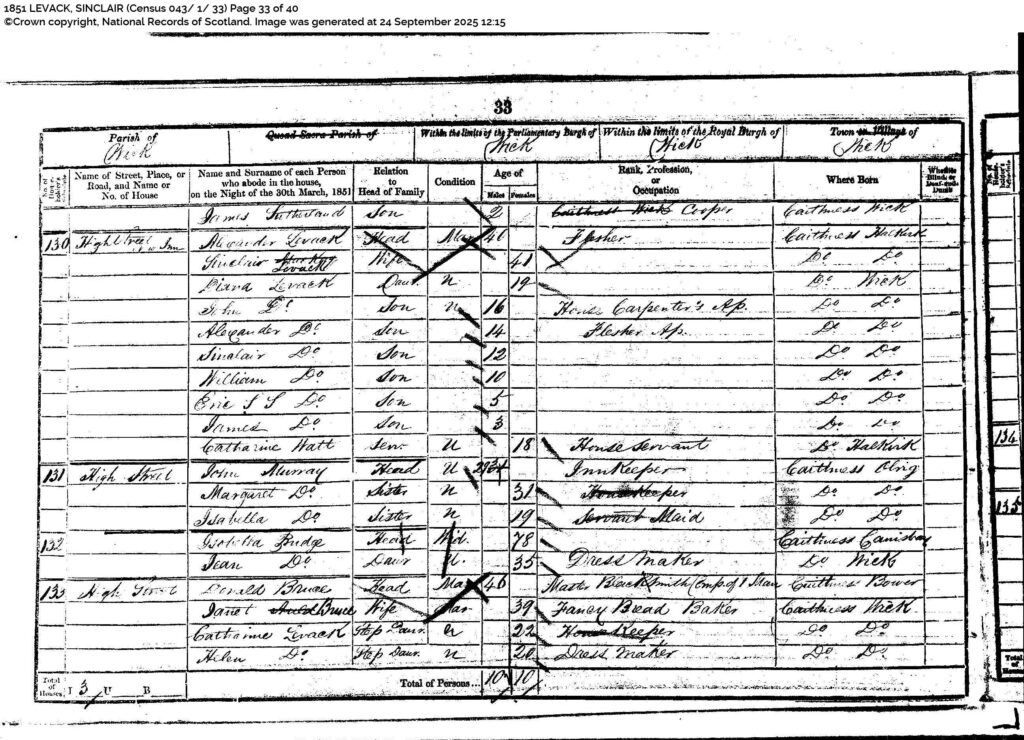 1851 LEVACK, SINCLAIR (Census 043/ 1/ 33) Page 33 of 40
©Crown copyright, National Records of Scotland. Image was generated at 24 September 2025 12:15
33
Parish of Wick
Quoad Sacra Parish of
Within the limits of the Parliamentary Burgh of Wick
Within the limits of the Royal Burgh of Wick
Town or Village of Wick
No. of House-holder's Name of Street, Place, or Road, and Name or No. of House
Name and Surname of each Person who abode in the house, on the Night of the 30th March, 1851
Relation to Head of Family
Condition
Age of Males Females
Rank, Profession, or Occupation
Where Born
Whether Blind, or Deaf-and-Dumb
James Sutherland Son 2 Cooper Caithness Wick
130 High Street Inn Alexander Levack Head Mar 46 Flesher Caithness Halkirk
Sinclair Levack Wife 41 Do Do
Diana Levack Daur U 19 Do Wick
John Do Son U 16 House Carpenter's Ap. Do Do
Alexander Do Son 14 Flesher Ap. Do Do
Sinclair Do Son 12 Do Do
William Do Son 10 Do Do
Eric S S Do Son 5 Do Do
James Do Son 3 Do Do
Catharine Watt Serv U 18 House Servant Do Halkirk
131 High Street John Murray Head U 34 Innkeeper Caithness Olrig
Margaret Do Sister U 31 HouseKeeper Do Do
Isabella Do Sister U 19 Servant Maid Do Do
132 Isabella Budge Head Wid. 78 Caithness Canisbay
Jean Do Daur U. 35 Dress Maker Do Wick
133 High Street Donald Bruce Head Mar 46 Master Blacksmith (Emp. of 1 Man Caithness Bower
Janet Bruce Wife Mar 39 Fancy Bread Baker Caithness Wick
Catharine Levack Step Daur. U 22 House Keeper Do Do
Helen Do Step Daur. U 20 Dress Maker Do Do
Total of Houses I 3 U B Total of Persons... 10 10
134
135
Total of Houses